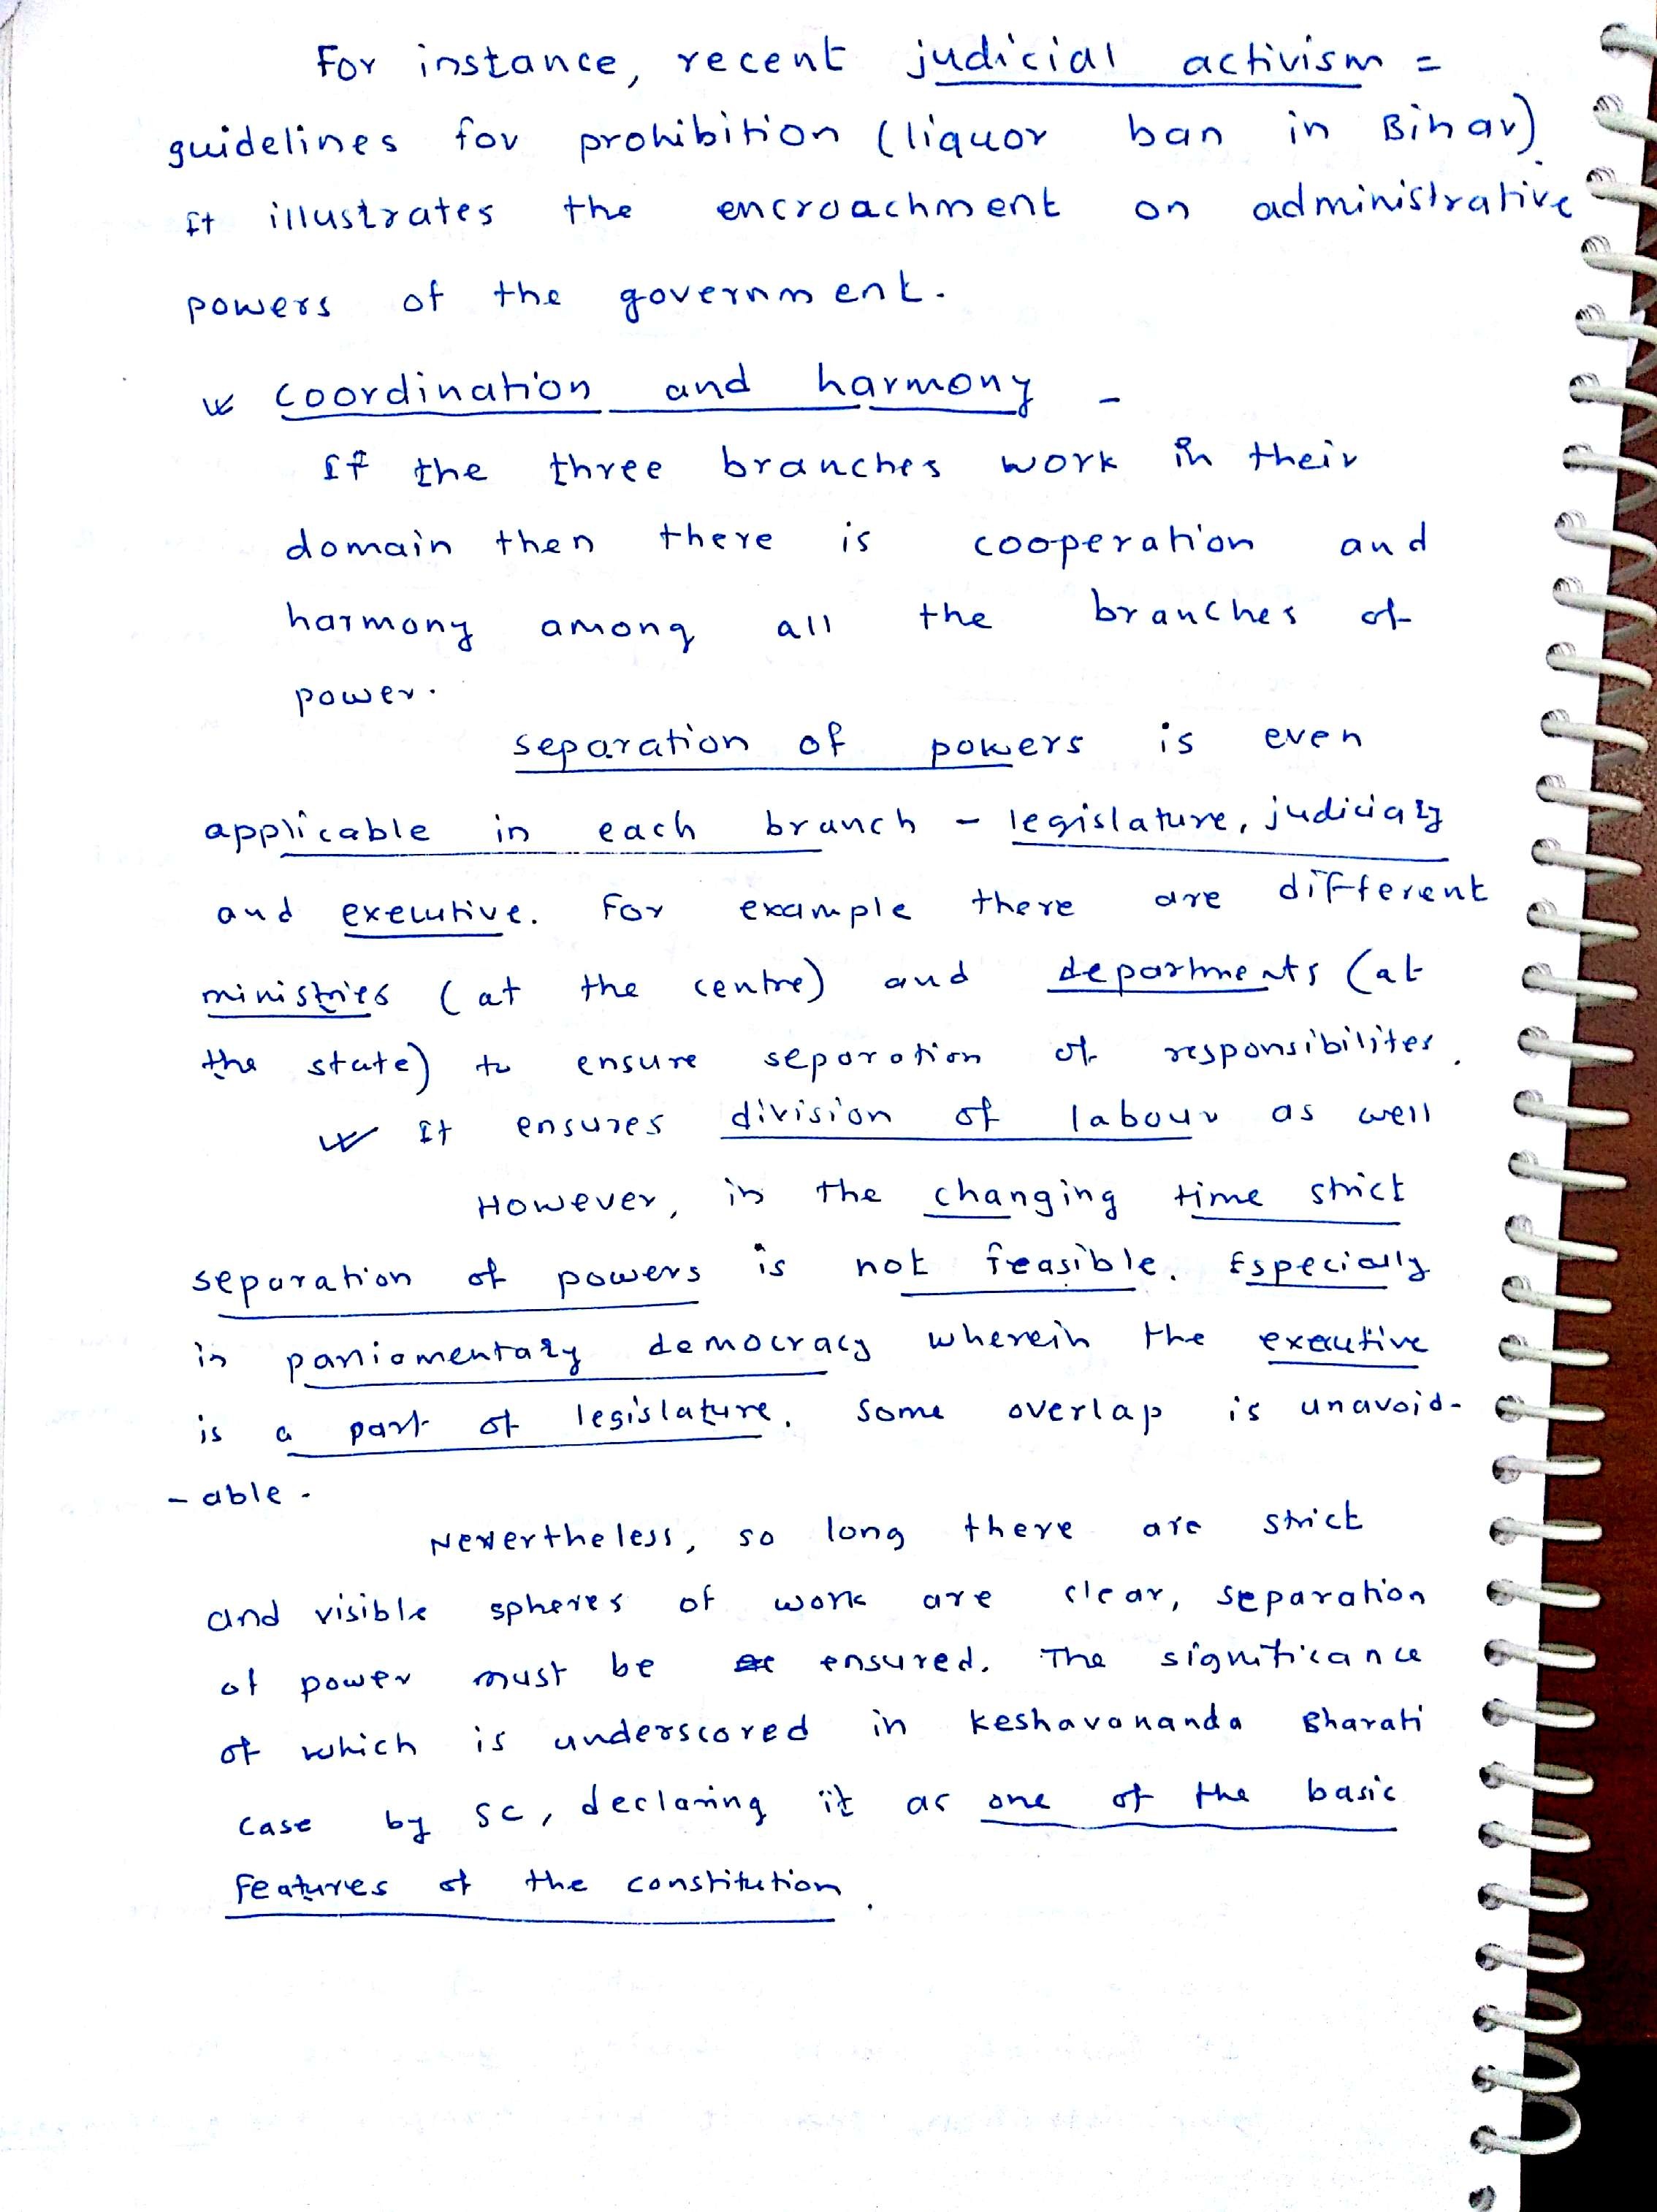 For instance, recent judicial activism =
guidelines for prohibition (liquor ban in Bihar).
It illustrates the encroachment on administrative
powers of the government.
coordination and harmony -
If the three branches work in their
domain then there is cooperation and
harmony among all the branches of
power.
separation of powers is even
applicable in each branch - legislature, judiciary
and executive. For example there are different
ministries (at the centre) and departments (at
the state) to ensure separation of responsibilites.
It ensures division of labour as well
However, in the changing time strict
separation of powers is not feasible. Especially
in parliamentary democracy wherein the executive
is a part of legislature. Some overlap is unavoid-
- able.
Nevertheless, so long there are strict
and visible spheres of work are clear, separation
of power must be ensured. The significance
of which is underscored in Keshavananda Bharati
case by SC, declaring it as one of the basic
features of the constitution.